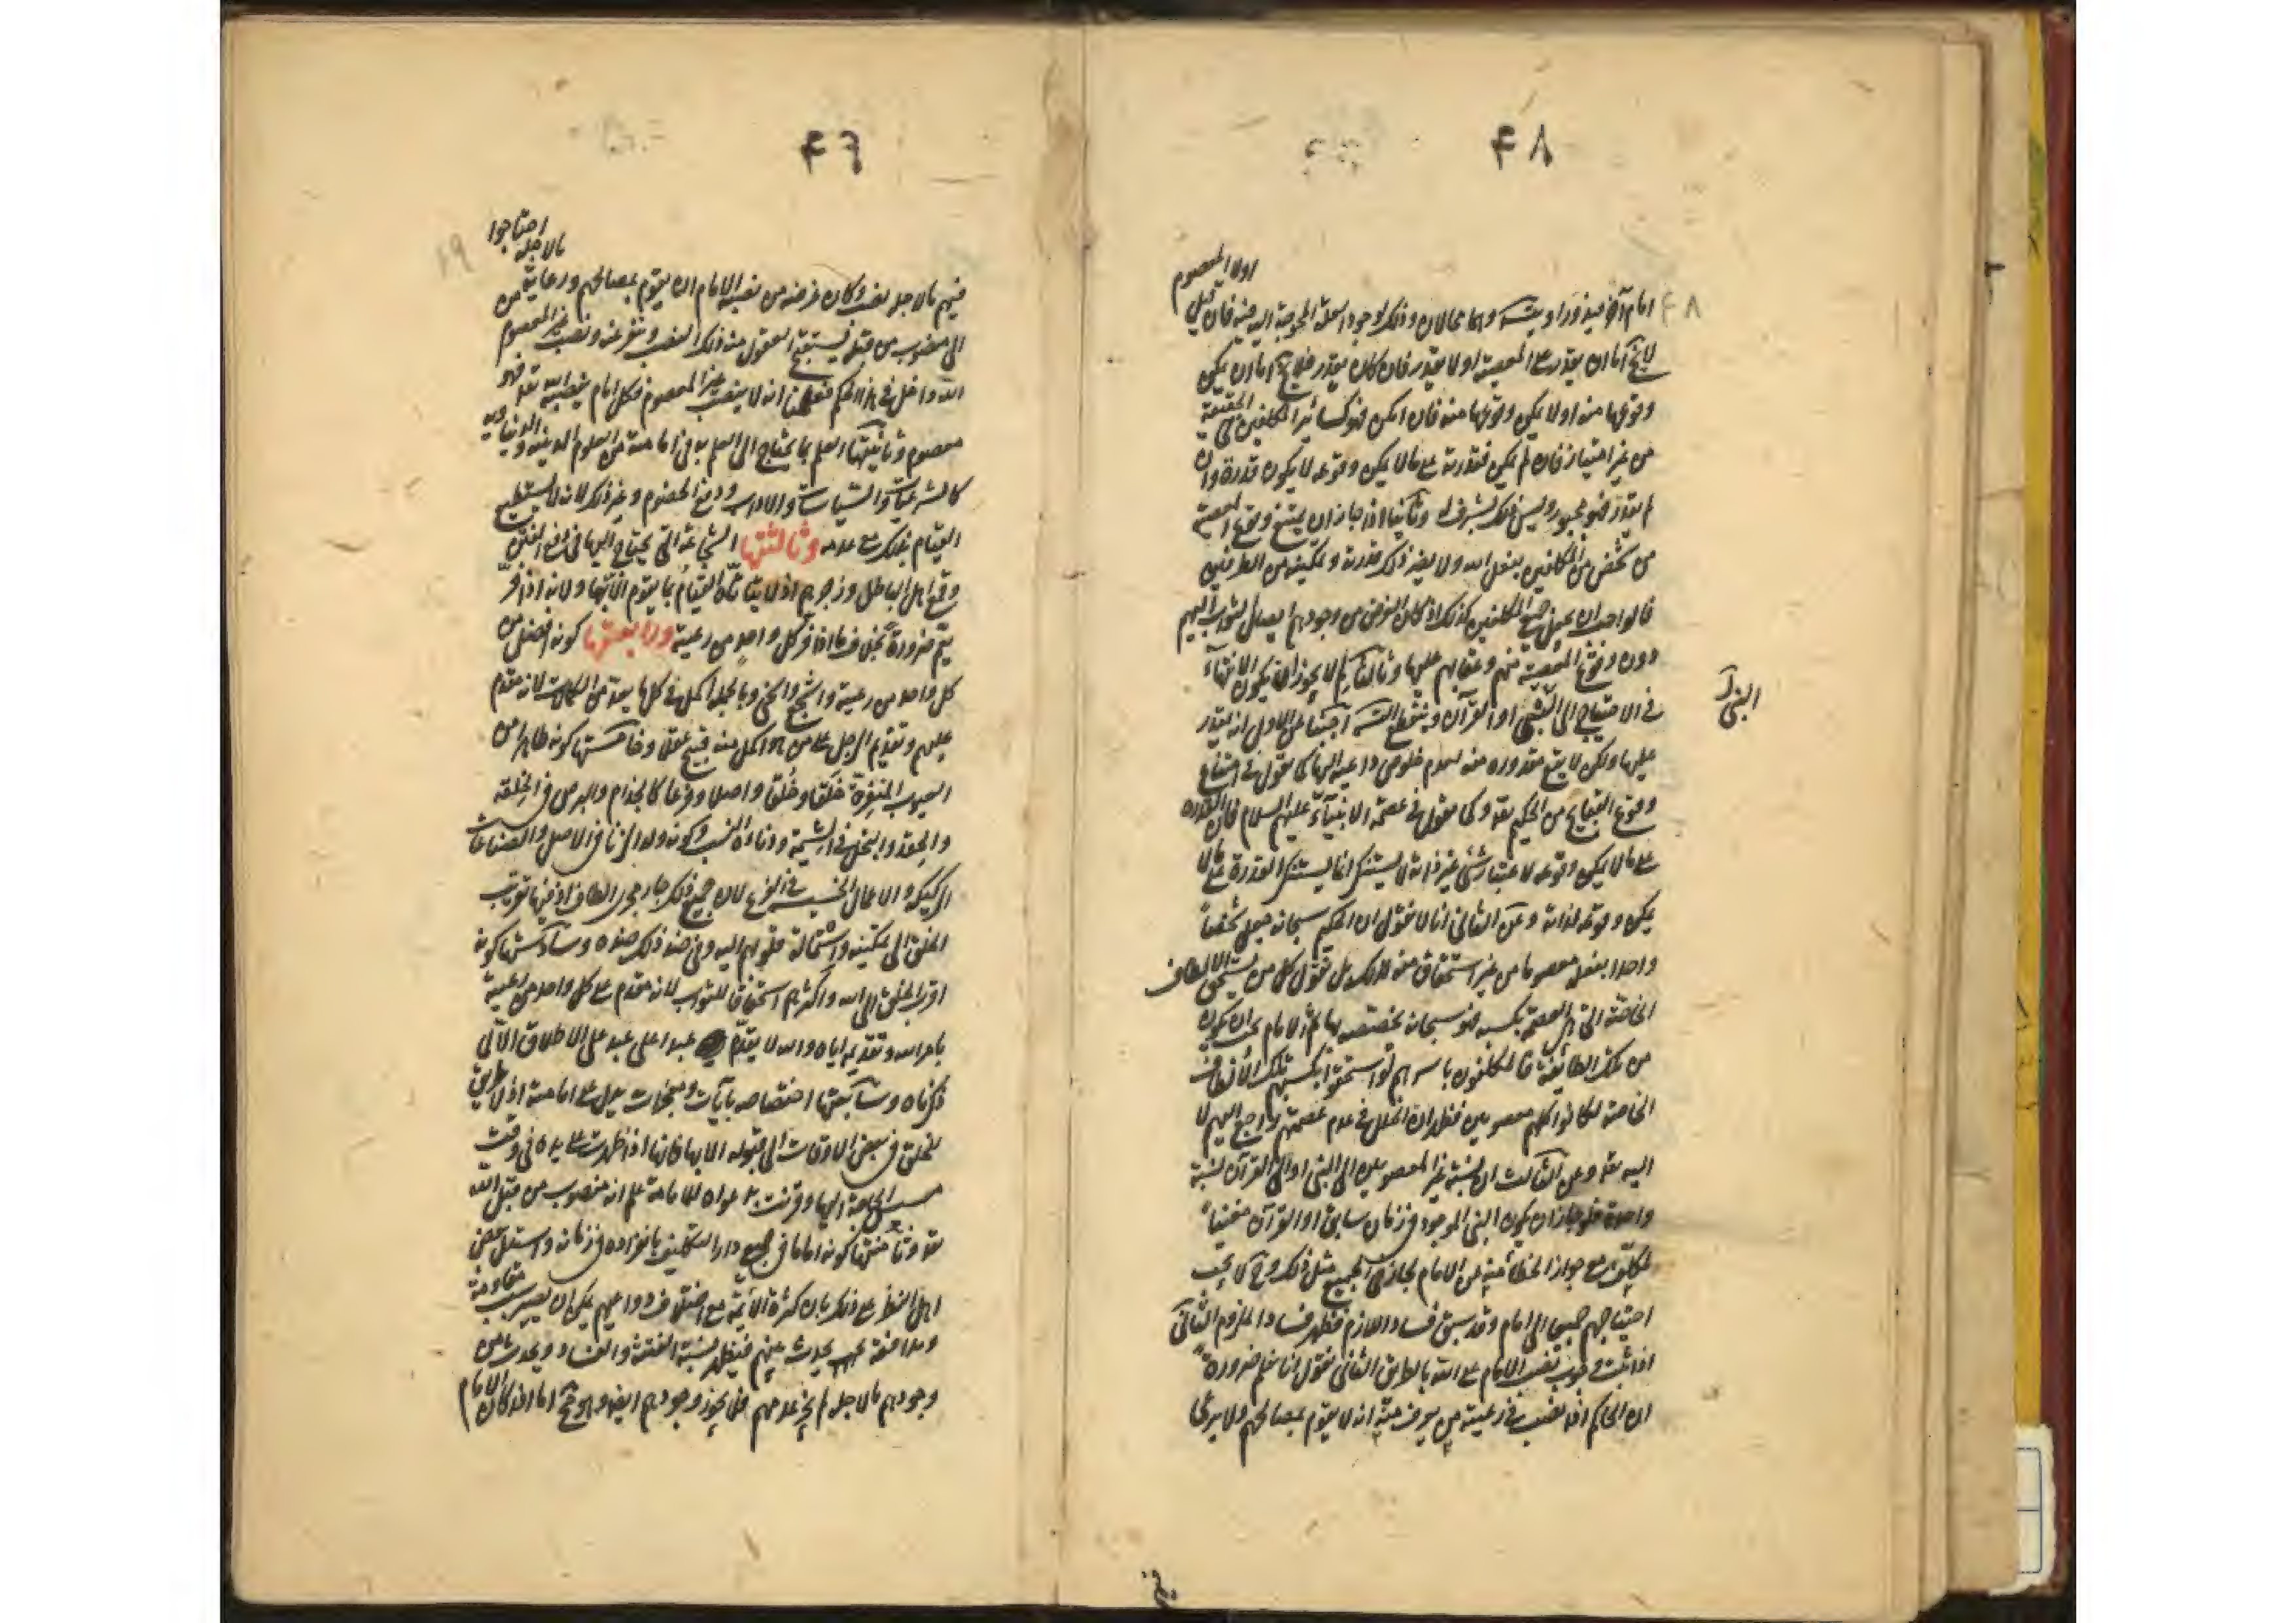 ۴۸
امام آخر فيدور او يتسلسل وهما محالان وذلك لوجود العلة المحوجة اليه فيه فان قيل
اولا المعصوم
لا يخ اما ان يقدر على المعصية او لا يقدر فان كان يقدر فلا يخ اما ان يمكن
وقوعها منه او لا يمكن وقوعها منه فان امكن فهو كسائر المكلفين في الحقيقة
من غير امتياز فان لم يمكن فقدرته على ما لا يمكن وقوعه لا يكون قدرة وان
لم يقدر فهو مجبور وليس ذلك بشرف له وثانيا اذا جاز ان يمتنع وقوع المعصية
من شخص من المكلفين بفعل الله ولا يضر ذلك قدرته وتمكينه من الطرفين
فالواجب ان يعمل جميع المكلفين كذلك اذ كان الغرض من وجودهم ايصال الثواب اليهم
دون وقوع المعصية منهم وعقابهم عليها وثالثا لم لا يجوز ان يكون الانتهاء
في الاحتياج الى النبي او القرآن وينقطع التسلسل اجبنا عن الاول انه يقدر
النبي
عليها ولكن لا يقع مقدوره منه لعدم خلوص داعيه اليها كما نقول في امتناع
وقوع القبايح من الحكيم تعالى وكما نقول في عصمة الانبياء عليهم السلام فان القدرة
على ما لا يمكن وقوعه لاعتبار شئ غير ذاته لا يستنكر انما يستنكر القدرة على ما لا
يمكن وقوعه لذاته وعن الثاني انا لا نقول ان الحكيم سبحانه جعل شخصا
واحدا بفعله معصوما من غير استحقاق منه لذلك بل نقول كل من يستحق الالطاف
الخاصة التي هي العصمة بكسبه فهو سبحانه يخصصه بها ثم الامام يجب ان يكون
من تلك الطائفة فالمكلفون باسرهم لو استحقوا بكسبهم تلك الالطاف
الخاصة لكانوا كلهم معصومين فظهر ان الخلل في عدم عصمتهم راجع اليهم لا
اليه تعالى وعن الثالث ان نسبة غير المعصومين الى النبي او الى القرآن نسبة
واحدة فلو جاز ان يكون النبي الموجود في زمان سابق او القرآن مغنيا
لمكلف مع جواز الخطأ منه عن الامام لجاز في الجميع مثل ذلك وح لا يجب
احتياجهم جميعا الى امام وقد سبق فساد اللازم فظهر فساد الملزوم الثاني
اذا ثبت وجوب نصب الامام على الله بالطريق الثاني نقول انا نعلم ضرورة
ان الحاكم اذا نصب في رعيته من يعرف منه انه لا يقوم بمصالحهم ولا يرعى
۴۹
فيهم ما لاجله نصبه وكان غرضه من نصبه الامام ان يقوم بمصالحهم ورعاية من
ما لاجله احتاجوا
الى منصوب من قبله فيستقبح العقول منه ذلك النصب وتنفر عنه ونصب غير المعصوم
الله داخل في هذا الحكم فعلمنا انه لا ينصب غير المعصوم فكل امام ينصبه الله تعالى فهو
معصوم وثانيتها العلم بما يحتاج الى العلم به في امامته من العلوم الدينية والدنياوية
كالشرعيات والسياسات والاداب ودفع الخصوم وغير ذلك لانه لا يستطيع
القيام بذلك مع عدمه وثالثتها الشجاعة التي يحتاج اليها في دفع الفتن
وقمع اهل الباطل وزجرهم اذ لا يتأتى القيام بما يقوم الا بها ولانه اذا فر
يتم ضرورة بخلاف ما اذا فر كل واحد من رعيته ورابعتها كونه افضل من
كل واحد من رعيته واشجع واسخى وبالجملة اكمل في كل ما يعد من الكمالات لانه مقدم
عليهم وتقديم الرجل على من هو اكمل منه قبيح عقلا وخامستها كونه طاهرا من
العيوب المنفرة خلقا وخلقا واصلا وفرعا كالجذام والبرص في الخلقة
والحقد والبخل في الشيمة ودناءة النسب وكونه ولد الزنا في الاصل والصناعات
الركيكة والاعمال الخسيسة في الفرع لان جميع ذلك جار مجرى الالطاف اذ فيها تقريب
الخلق الى تمكينه واستمالة قلوبهم اليه وفي ضد ذلك ضده وسادستها كونه
اقرب الخلق الى الله واكثرهم استحقاقا للثواب لانه مقدم على كل واحد من رعيته
بامر الله وتقديمه اياه والله لا يقدم عبدا على عبد على الاطلاق الا الى
ذكرناه وسابعتها اختصاصه بآيات ومعجزات يدل على امامته اذ لا طريق
للخلق في بعض الاوقات الى قبوله الا بها فانها اذا ظهرت على يده في وقت
مسيس الحاجة اليها وقرنت بدعواه للامامة علم انه منصوب من قبل الله
تعالى وثامنتها كونه اماما في جميع دار التكليف بانفراده في زمانه واستدل بعض
اهل النظر على ذلك بان كثرة الائمة مع اختلاف دواعيهم يمكن ان يصير سبب مقاومة
ومدافعة يحدث بينهم فيظهر بسببه الفتنة والفساد ويحدث من
وجودهم ما لاجله لم يجز عدمهم فلا يجوز وجودهم ايضا وهو قبيح اما اذا كان الامام